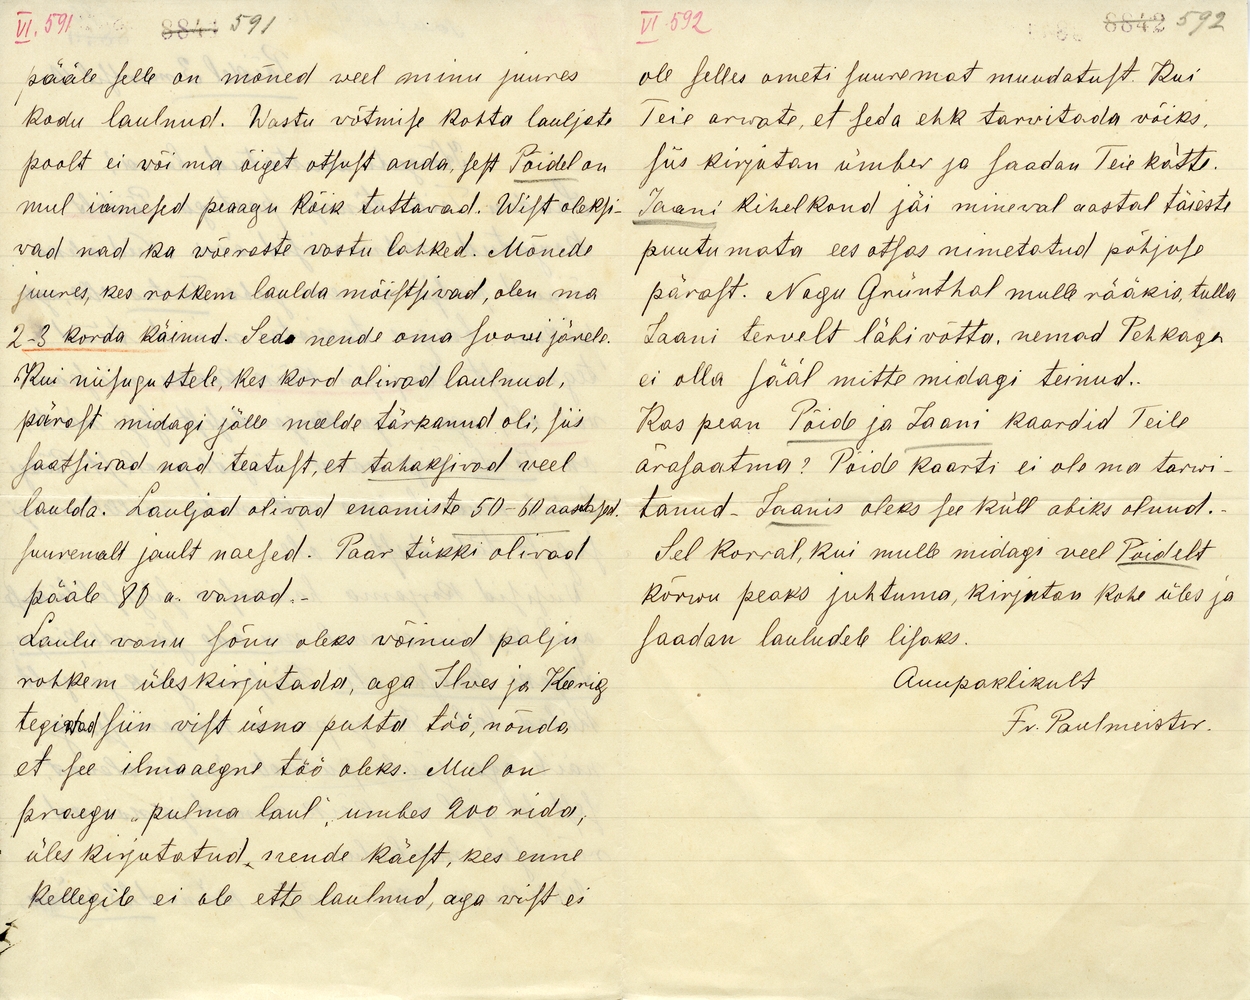 VI. 591
8841 591
pääle selle on mõned veel minu juures
kodu laulnud. Wastu võtmise kohta lauljate
poolt ei või ma õiget otsust anda, sest Pöidel on
mul inimesed peaagu kõik tuttavad. Wist oleksi-
vad nad ka võeraste vastu lahked. Mõnede
juures, kes rohkem laulda mõistsivad, olen ma
2-3 korda käinud. Seda nende oma soovi järele.
Kui niisugustele, kes kord oliwad laulnud,
pärast midagi jälle meelde tärkanud oli, siis
saatsiwad nad teatust, et tahaksivad veel
laulda. Lauljad olivad enamiste 50-60 aastased.
suuremalt jault naesed. Paar tükki olivad
pääle 80 a. vanad.-
Laulu wanu sõnu oleks võinud palju
rohkem üleskirjutada, aga Ilves ja Keerig
tegivad siin vist üsna puhta töö, nõnda
et see ilmaaegne töö oleks. Mul on
praegu „pulma laul", umbes 200 rida,
üles kirjutatud, nende käest, kes enne
kellegile ei ole ette laulnud, aga vist ei
VI 592
8842 592
ole selles ometi suuremat muudatust. Kui
Teie arwate, et seda ehk tarvitada võiks,
siis kirjutan ümber ja saadan Teie kätte.
Jaani kihelkond jäi mineval aastal täieste
puutumata ees otsas nimetatud põhjuse
pärast. Nagu Grünthal mulle rääkis, tulla
Jaani tervelt läbi võtta, nemad Pehkaga
ei olla sääl mitte midagi teinud..
Kas pean Pöide ja Jaani kaardid Teile
ärasaatma? Pöide kaarti ei ole ma tarwi-
tanud- Jaanis oleks see küll abiks olnud.-
Sel korral, kui mulle midagi veel Pöidelt
kõrwu peaks juhtuma, kirjutan kohe üles ja
saadan lauludele lisaks.
Auupaklikult
Fr. Paulmeister.